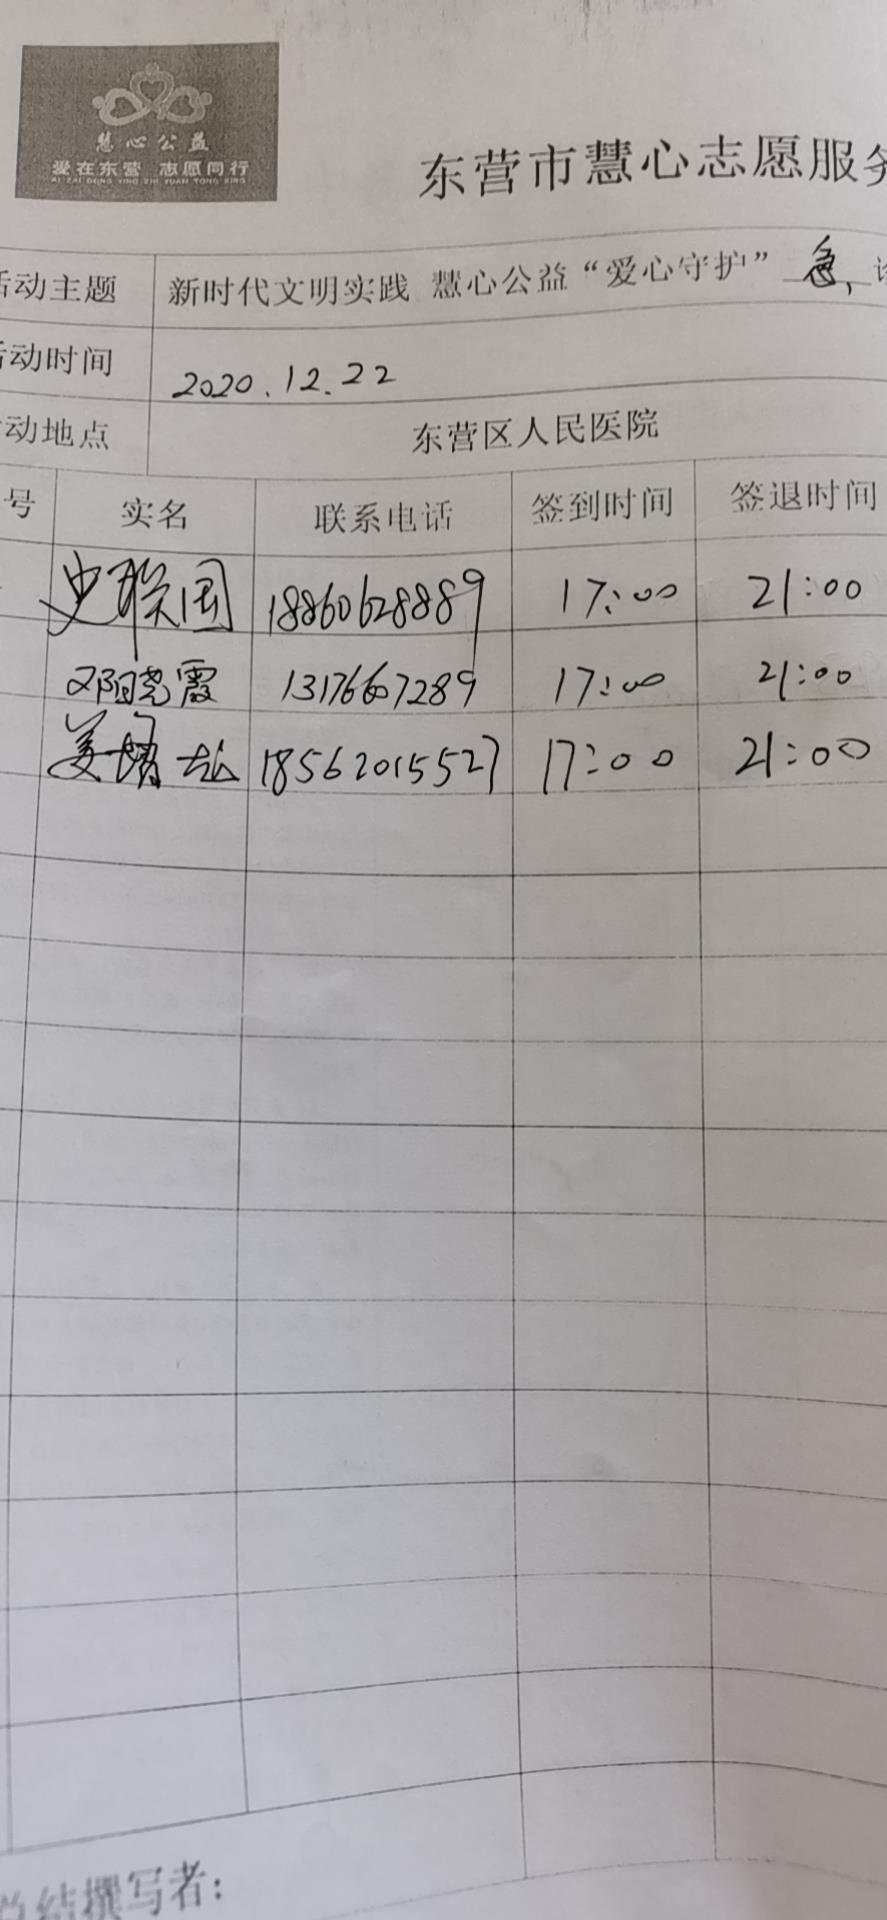 慧心公益
爱在东营 志愿同行
AI ZAI DONG YING ZHI YUAN TONG XING
东营市慧心志愿服务
活动主题 新时代文明实践 慧心公益“爱心守护” 急,诊
活动时间 2020.12.22
活动地点 东营区人民医院
号 实名 联系电话 签到时间 签退时间
史联国 18860628889 17:00 21:00
邓阳晓霞 13176667289 17:00 21:00
姜 18562015527 17:00 21:00
总结撰写者: